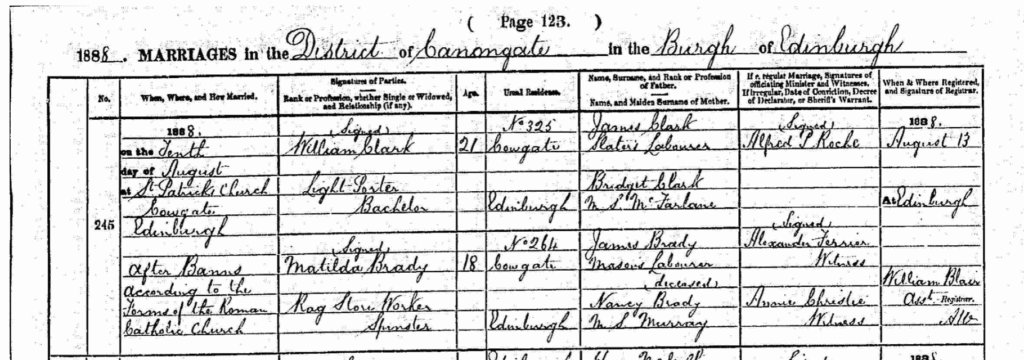 ( Page 123. )
1888. MARRIAGES in the District of Canongate in the Burgh of Edinburgh
No.
When, Where, and How Married.
Signatures of Parties.
Rank or Profession, whether Single or Widowed, and Relationship (if any).
Age.
Usual Residence.
Name, Surname, and Rank or Profession of Father.
Name, and Maiden Surname of Mother.
If a regular Marriage, Signatures of officiating Minister and Witnesses.
If irregular, Date of Conviction, Decree of Declarator, or Sheriff's Warrant.
When & Where Registered, and Signature of Registrar.
245
1888.
on the Tenth
day of August
at St Patricks Church
Cowgate
Edinburgh
After Banns
according to the
Forms of the Roman
Catholic Church
(Signed)
William Clark
Light Porter
Bachelor
(Signed)
Matilda Brady
Rag Store Worker
Spinster
21
18
No 325
Cowgate
Edinburgh
No 264
Cowgate
Edinburgh
James Clark
Slater's Labourer
Bridget Clark
M.S. McFarlane
James Brady
Mason's Labourer
(deceased)
Nancy Brady
M.S. Murray
(Signed)
Alfred P Roche
(Signed)
Alexander Ferrier
Witness
Annie Christie
Witness
1888.
August 13
At Edinburgh
William Blair
Asst. Registrar.